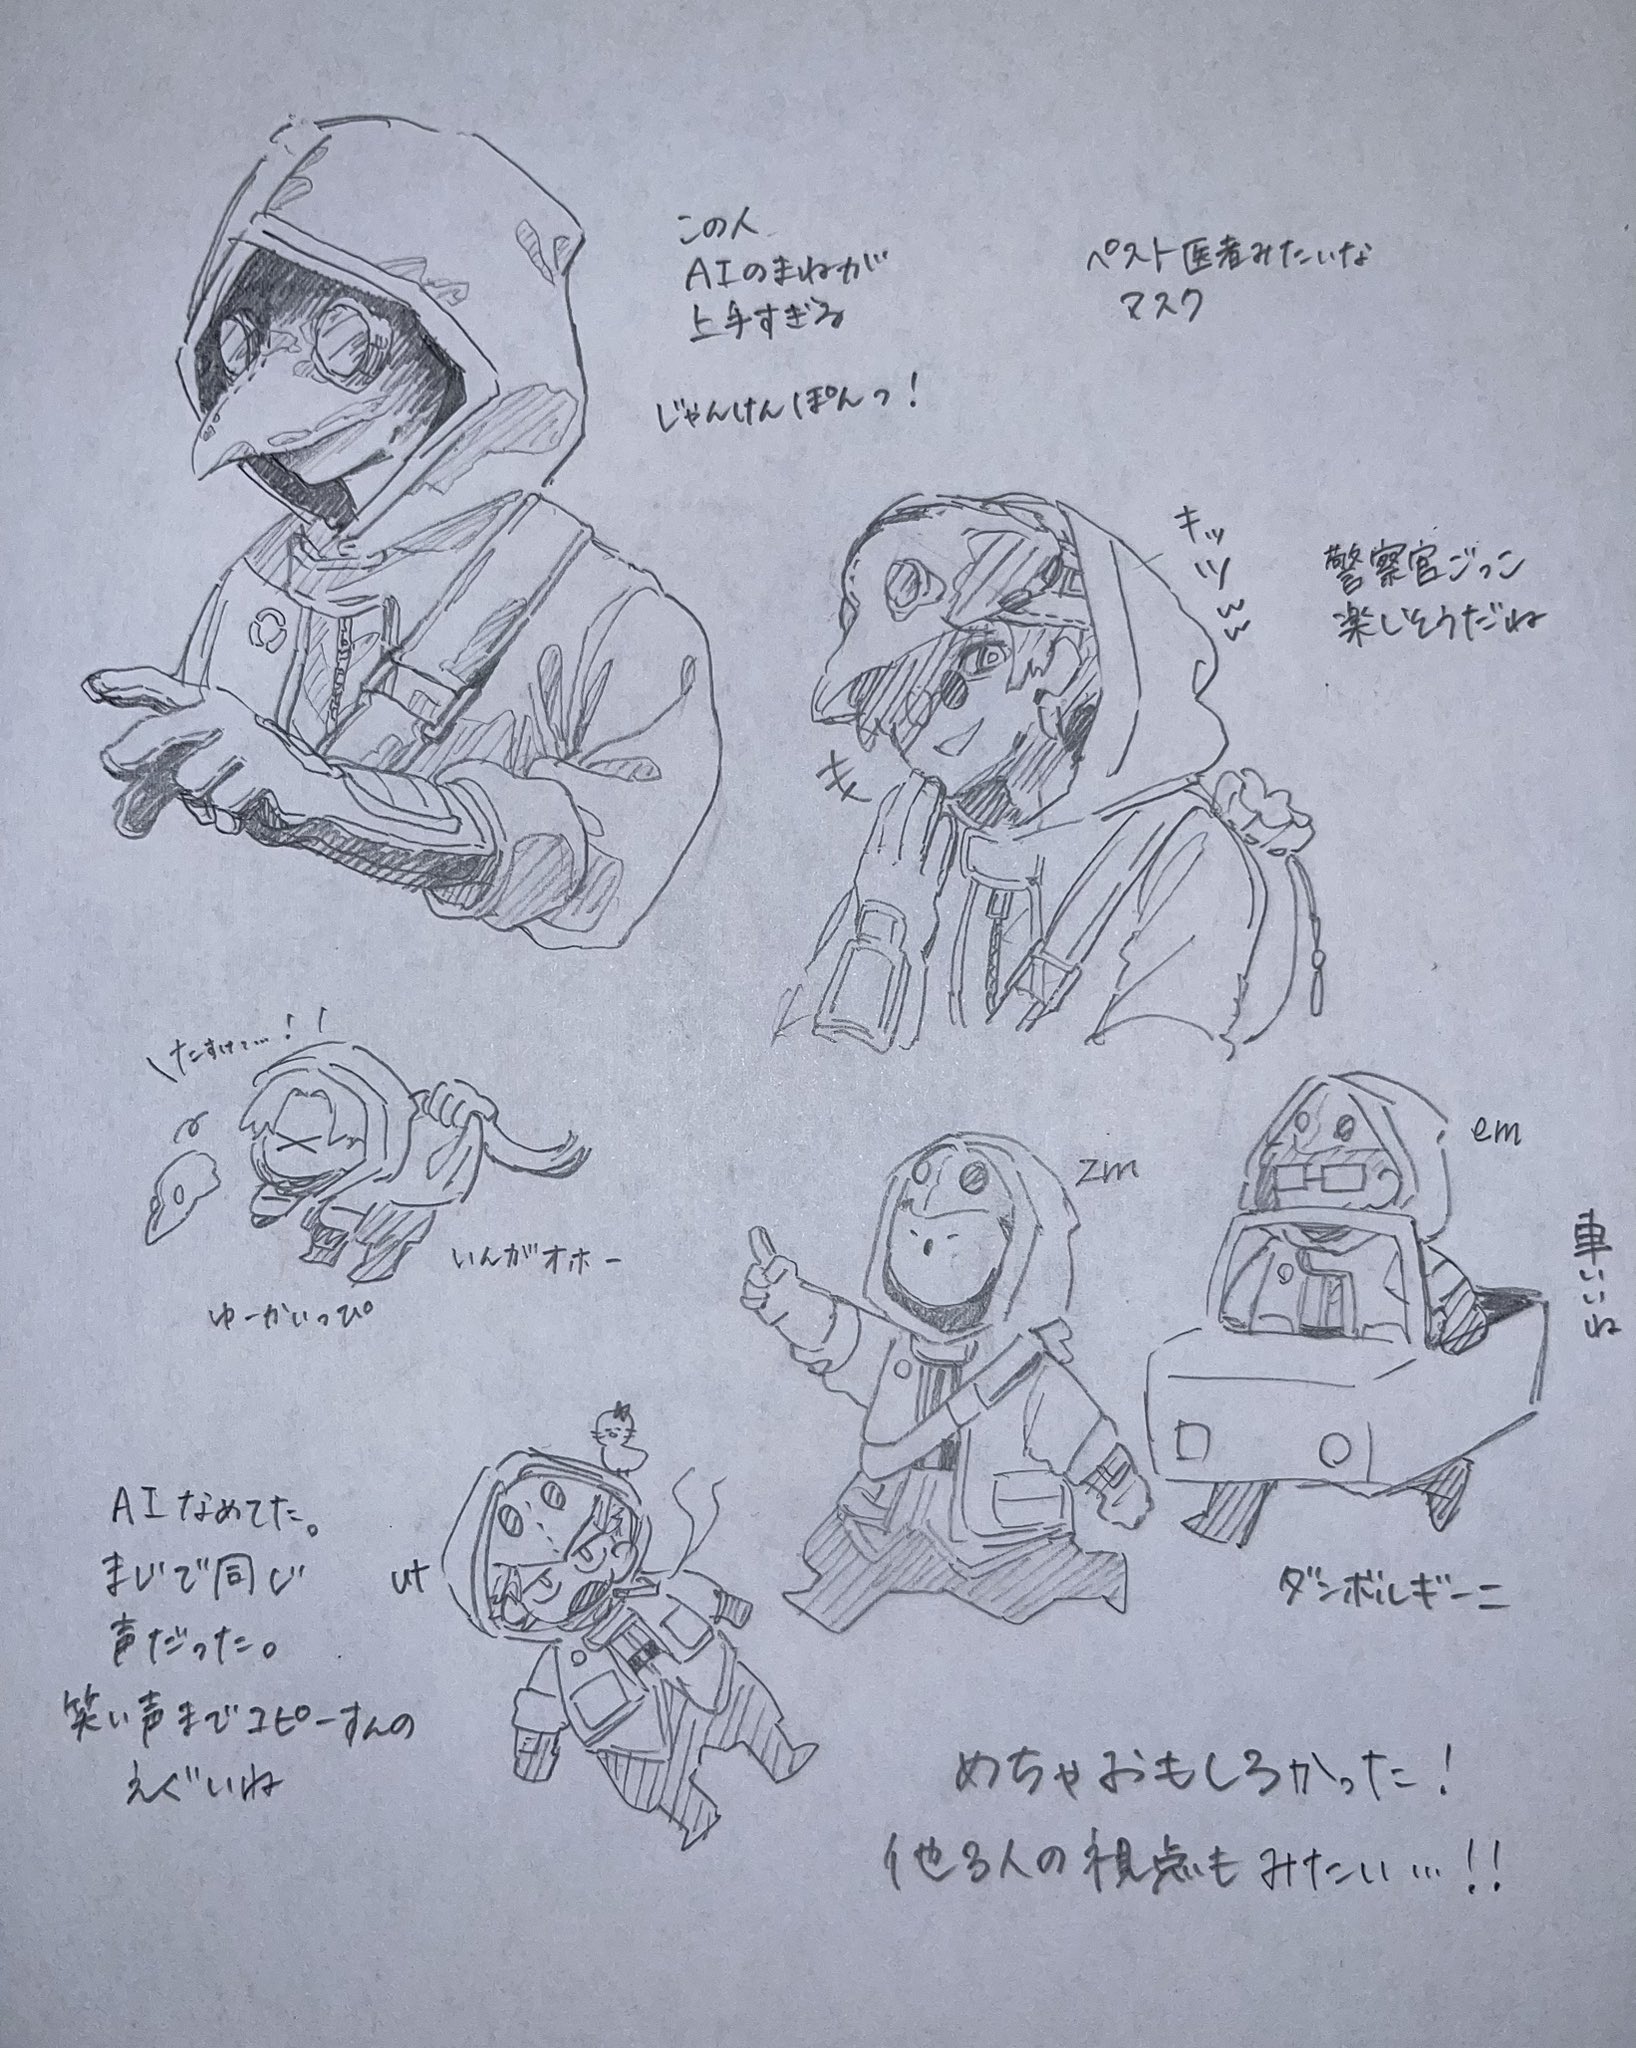 この人
AIのまねが
上手すぎる
じゃんけんぽんっ!
ペスト医者みたいな
マスク
キッッッwww
警察官ごっこ
楽しそうだね
たすけて…!!
いんがオホー
ゆーかいっぴ
zm
em
車いいね
ダンボルギーニ
ut
AIなめてた。
まじで同じ
声だった。
笑い声までコピーすんの
えぐいね
めちゃおもしろかった!
他3人の視点もみたい…!!